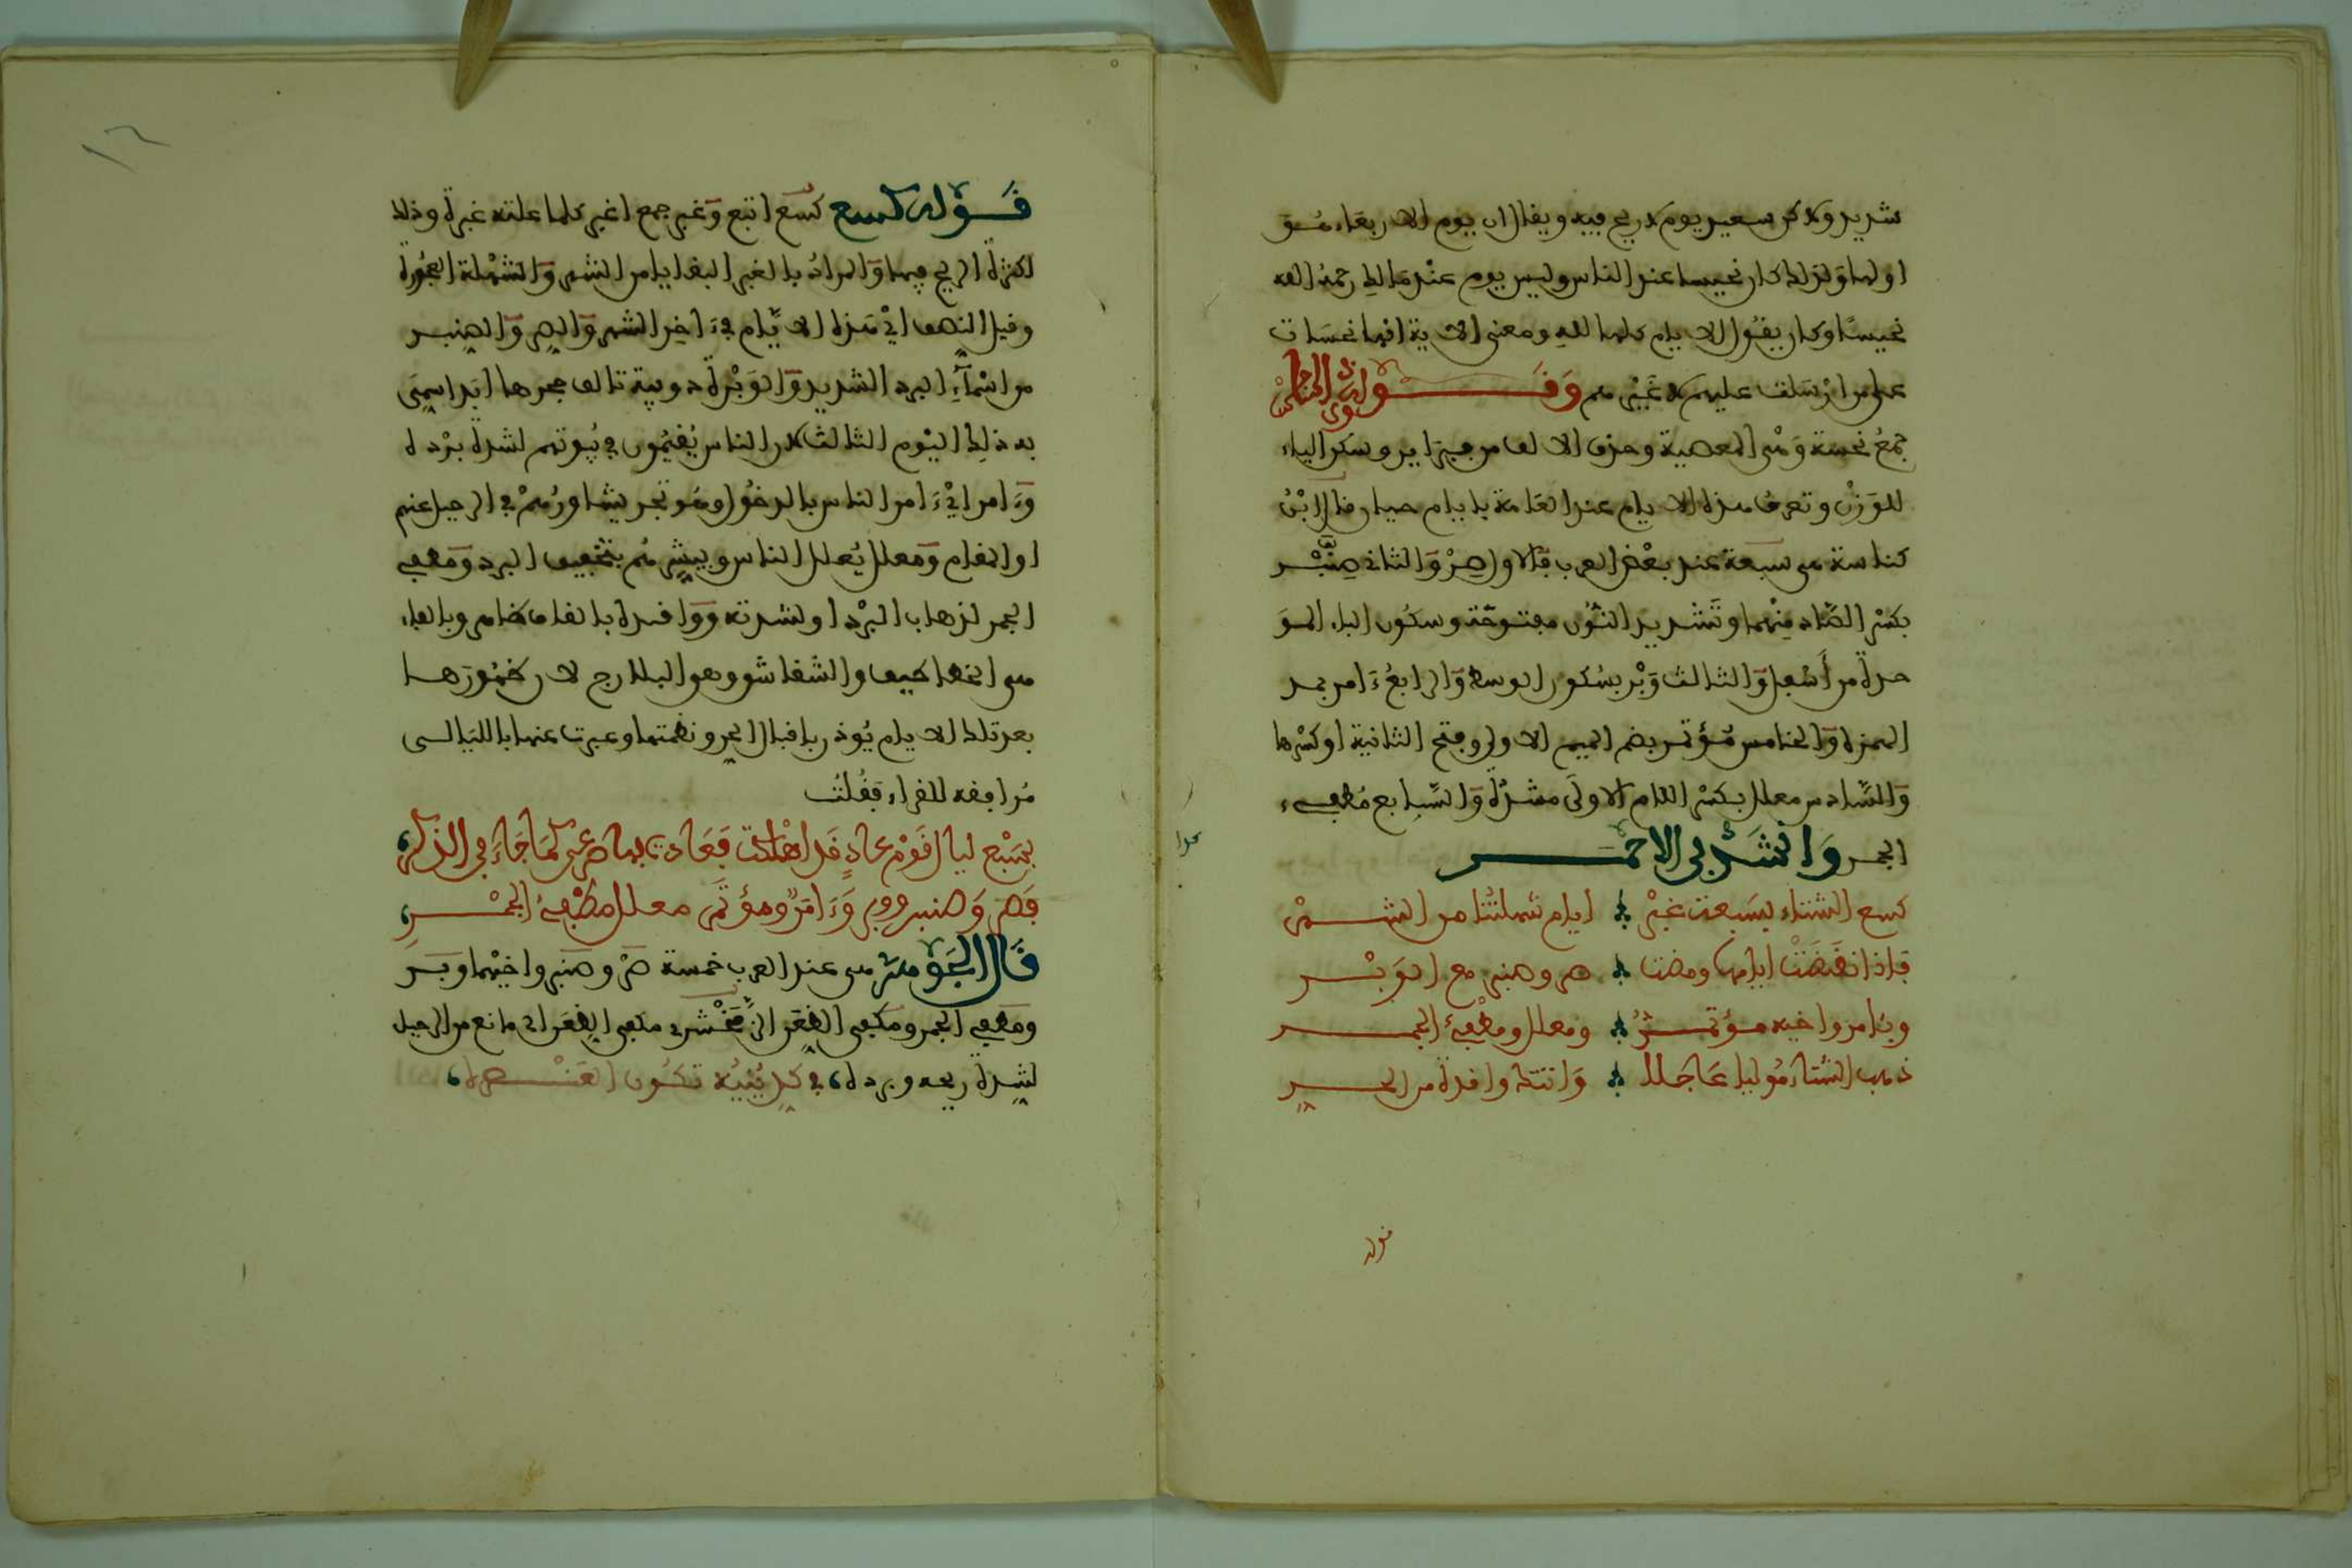 شديد ولاكن سعيد يوم لا ريح فيه ويقال ان يوم الاربعاء هو
اولها ولذلك كان نحيسا عند الناس وليس يوم عند مالك رحمه الله
نحيسًا وكان يقول الايام كلها لله ومعنى الاية انها نحسات
على من ارسلت عليهم لا غيرهم وَقَـوله
جمعُ نحسة وهي المعصية وحذف الالف من وسكن الياء
للوزن وتعرف هذه الايام عند العامة بايام حيان قال ابنُ
كناسة هي سبعة عند بعض العرب فالاول صِنْ والثاني صِنَّبْر
بكسر الصاد منهما وتشديد النون مفتوحة وسكون الباء المو
حدة من أسفل والثالث وَبْر بسكون الوسط والرابعُ ءَامر بمد
الهمزة والخامس مُؤتمر بضم الميم الاولى وفتح الثانية او كسرها
والسادس معلل بكسر اللام الاولى مشددة والسابع مُطفىء
الجمر وَانشَدَ لابى الاحمر
كسع الشتاء بسبعة غبْر ايام شهلتنا من الشهْر
فاذا انقضت ايامها ومضت صن وصنبر مع الوَبْر
وبئامر واخيه مؤتمرٌ ومعلل ومطفىءُ الجمر
ذهب الشتاءُ مُوليا عَاجَلا وَاتتك وافدة من الحر
قوله
قَـوله كسع كسع اتبع وغبر جمع اغبر كلما علته غبرة وذلك
لكثرة الريح فيها والمرادُ بالغبر البقايا من الشهر والشهْلة العجُوزة
وقيل النصف اي هذه الايَّام في ءَاخِر الشهر والصن والصنبر
من اسْمآءِ البرد الشديد والوَبْرة دويبة تالف جحرها ابدا سمِّى
به ذلك اليوم الثالث لان الناس يُقيمُون في بُيوتهم لشدة بردهِ
وءَامر ايْ ءَامر الناس بالدخول ومُوتمر يشاورُهمْ في الرحيل عنهم
او المقام ومعلل يُعلل الناس ويبشرهم بتخفيف البرد ومطفىء
الجمر لذهاب البرْد او لشدته ووافدة بالقاف وبالفاء
هي الخطاطيف والشقاشق وهو البلارج لان حضُورَها
بعد تلك الايام يُوذن باقبال الحر ونظمتها وعبرت عنها بالليالى
مُرافقه للقراء، فقُلتُ
بسَبْع ليال قوْم عادٍ قد اهلكت فعادت بها صرعى كما جَاءَ فى الذكر
فصن وصنبر ووبر وءَامرٌ ومؤتمر معلل مطفىءُ الجمْر
قَال الجَوْهَرِى هى عند العرب خمسة صن وصنبر واخيْهما وبر
ومطفىء الجمر ومكفى الظعن مكفى الظعن اى مانع من الرحيل
لشدة ريحه وبرده